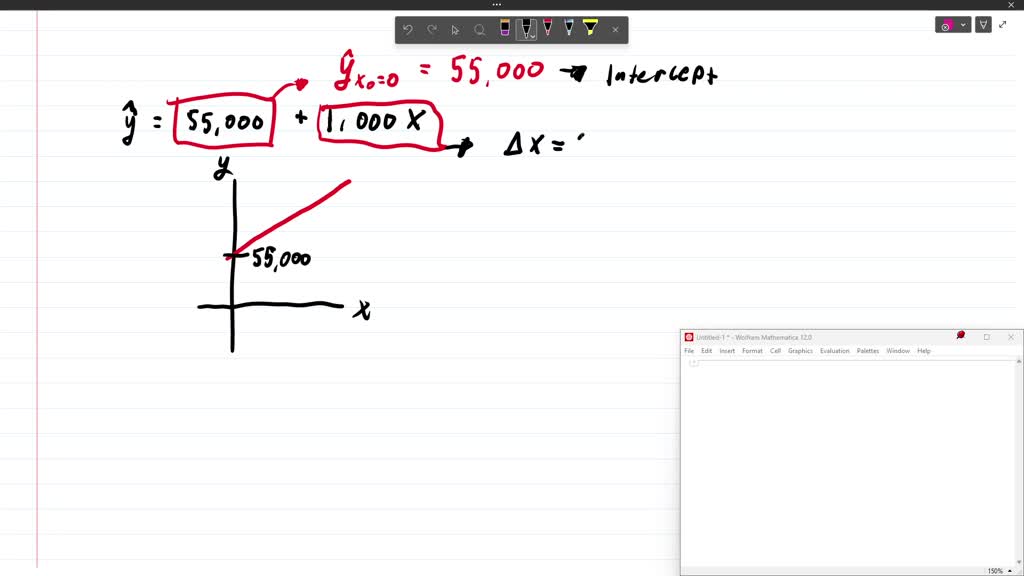 ŷx₀=0 = 55,000 → Intercept
ŷ = 55,000 + 1,000 X → Δx =
y
55,000
x
Untitled-1 * - Wolfram Mathematica 12.0
File Edit Insert Format Cell Graphics Evaluation Palettes Window Help
150%